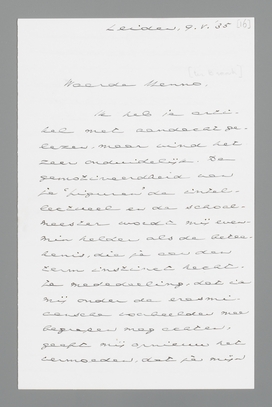 Leiden, 9.V.'35
Waarde Menno.
Ik heb je arti-
kel met aandacht ge-
lezen, maar vind het
zeer onduidelijk. De
gemotiveerdheid van
je "figuren" de intel-
lectueel en de school-
meester wordt mij even-
min helder als de betee-
kenis, die je aan den
term instinct hecht.
Je mededeeling, dat je
mij onder de erasmi-
aansche voorbeelden mee
begrepen mag achten,
geeft mij opnieuw het
vermoeden, dat je mijn